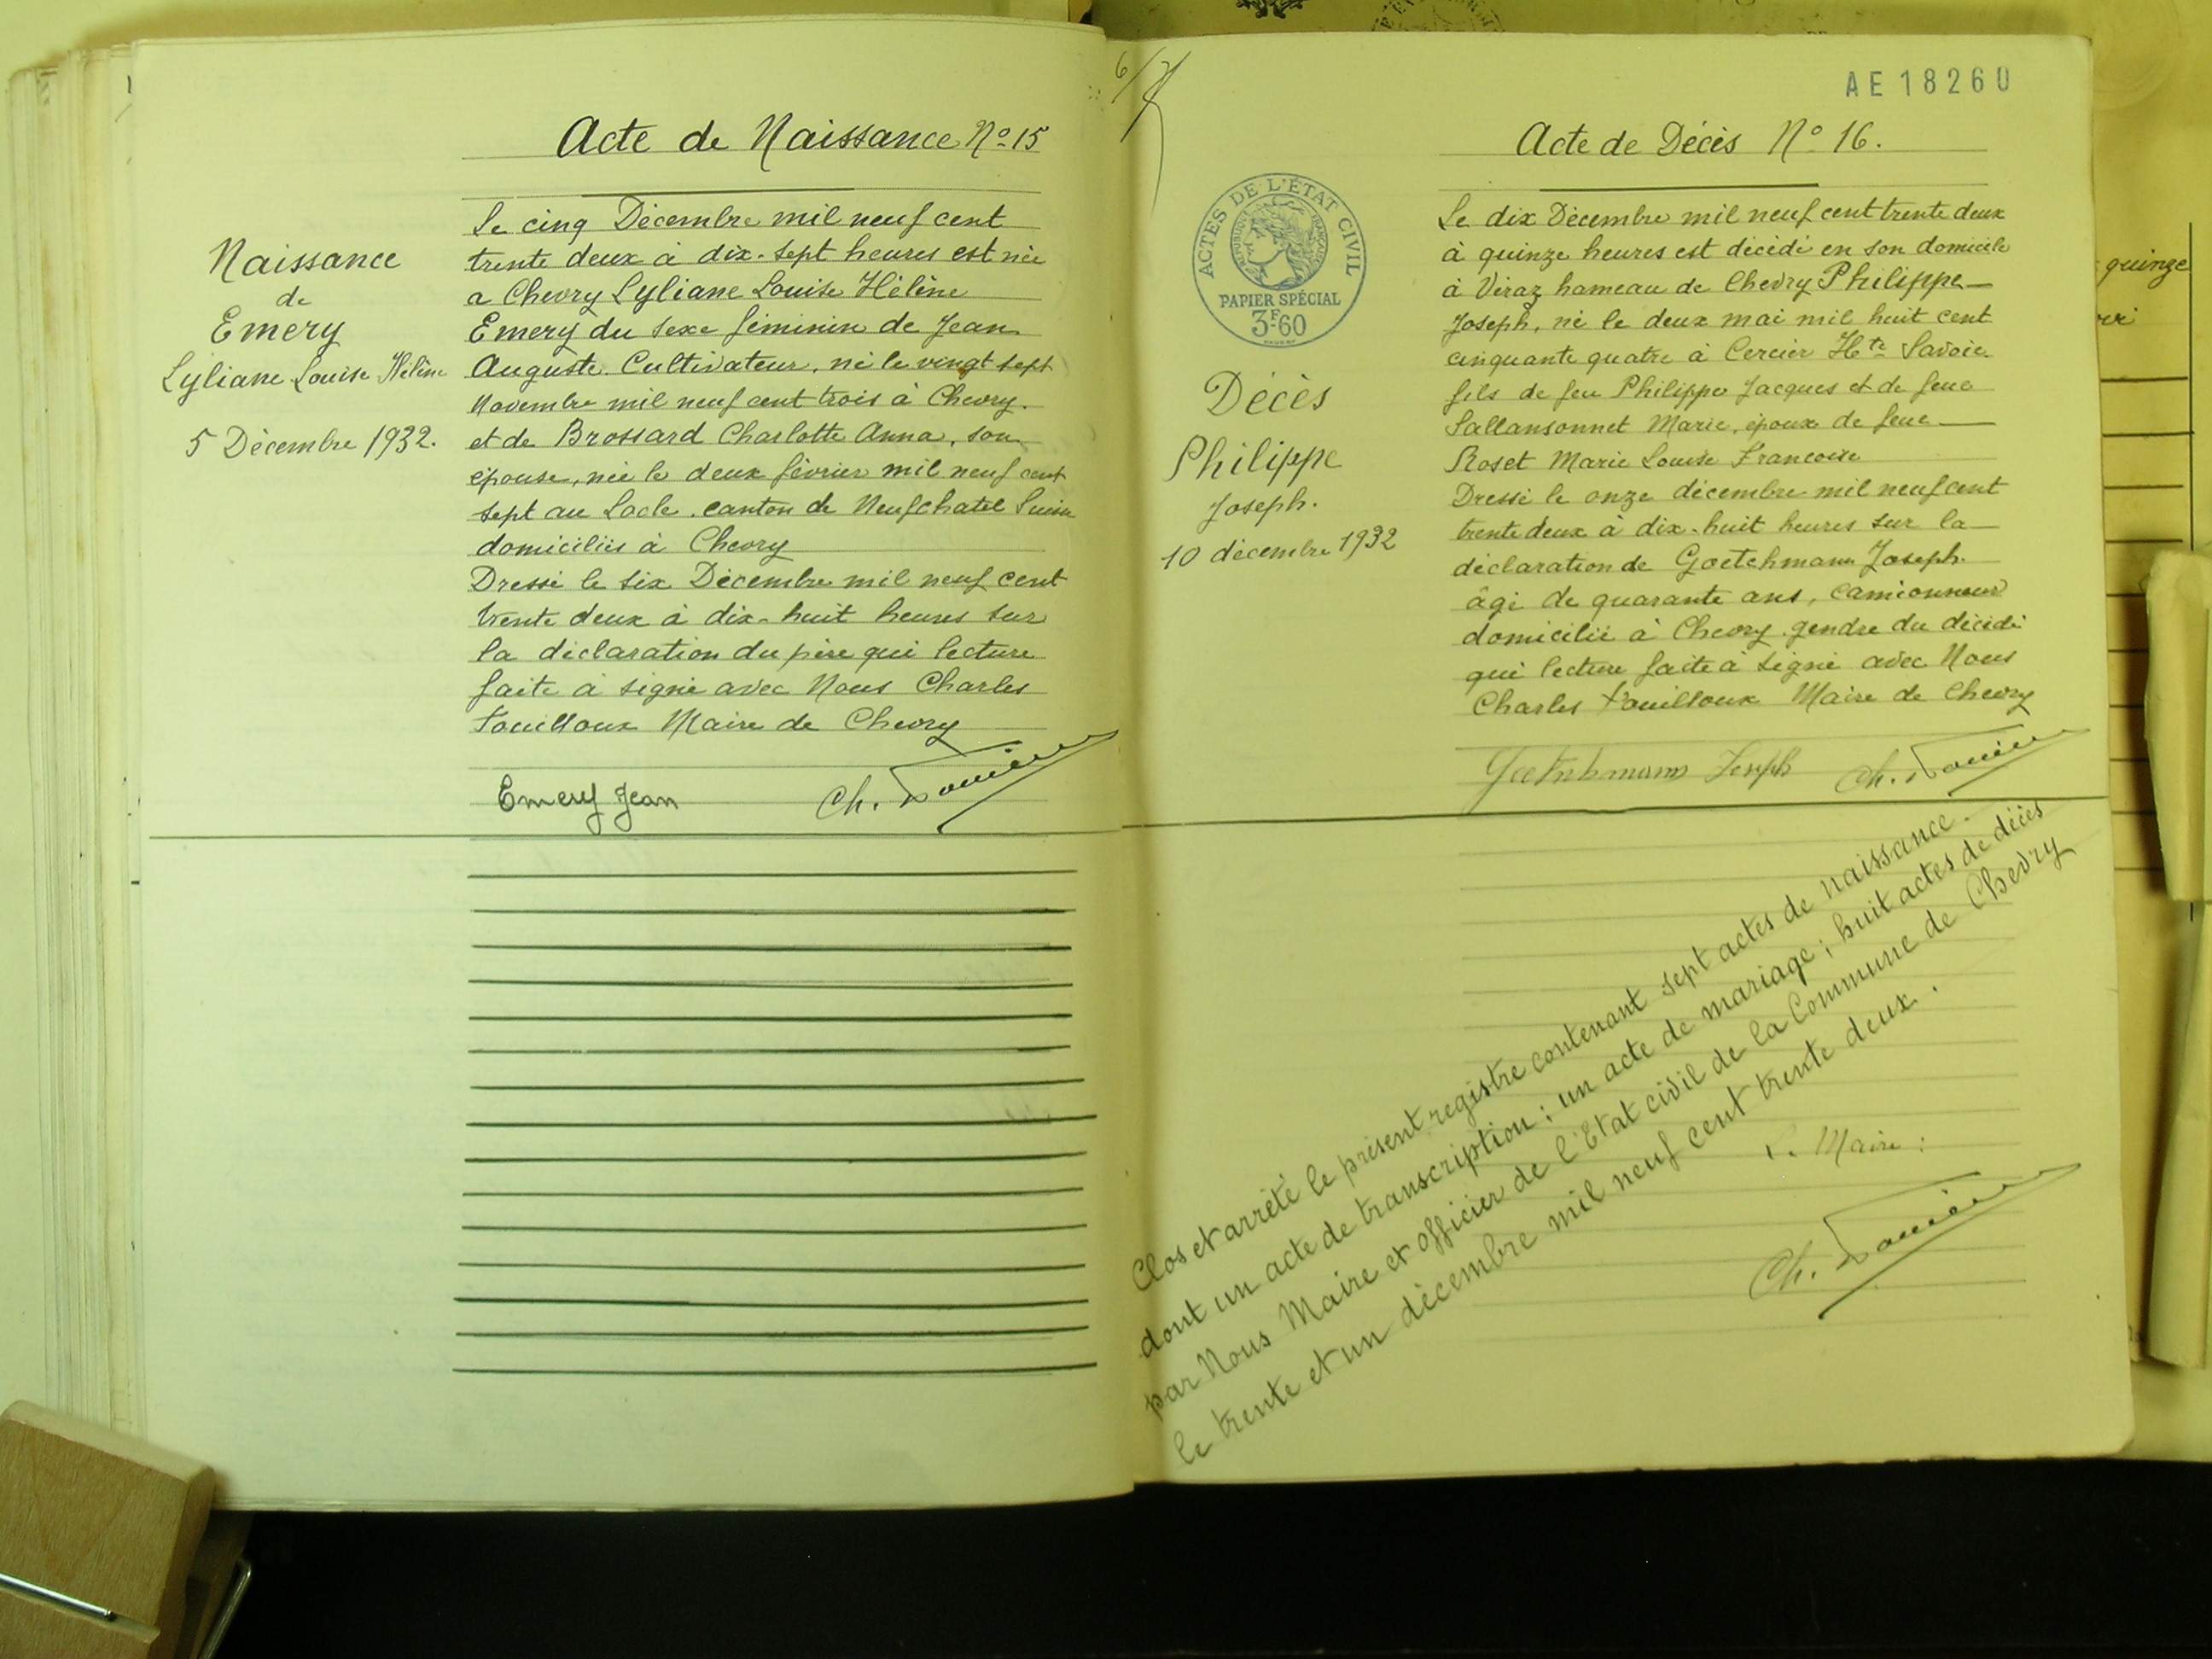 Acte de Naissance No 15
Naissance
de
Emery
Lyliane Louise Hélène
5 Décembre 1932.
Le cinq Décembre mil neuf cent
trente deux à dix-sept heures est née
a Chevry Lyliane Louise Hélène
Emery du sexe féminin de Jean
Auguste Cultivateur, né le vingt sept
Novembre mil neuf cent trois à Chevry.
et de Brossard Charlotte Anna, son
épouse, née le deux février mil neuf cent
sept au Locle, canton de Neufchatel Suisse
domiciliés à Chevry
Dressé le six Décembre mil neuf cent
trente deux à dix-huit heures sur
la déclaration du père qui lecture
faite a signé avec Nous Charles
Fouilloux Maire de Chevry
Emery Jean
Ch.
AE 18260
Acte de Décès No 16.
ACTES DE L'ÉTAT CIVIL
RÉPUBLIQUE FRANÇAISE
PAPIER SPÉCIAL
3F60
Décès
Philippe
Joseph.
10 décembre 1932
Le dix Décembre mil neuf cent trente deux
à quinze heures est décédé en son domicile
à Véraz hameau de Chevry Philippe
Joseph, né le deux mai mil huit cent
cinquante quatre à Cercier Hte Savoie.
fils de feu Philippe Jacques et de feue
Sallansonnet Marie, époux de feue
Roset Marie Louise Francoise
Dressé le onze décembre mil neuf cent
trente deux à dix-huit heures sur la
déclaration de Goetchmann Joseph.
âgé de quarante ans, camionneur
domicilié à Chevry gendre du décédé
qui lecture faite à signé avec Nous
Charles Fouilloux Maire de Chevry
Joseph Ch.
Clos et arrêté le présent registre contenant sept actes de naissance.
dont un acte de transcription; un acte de mariage; huit actes de décès
par Nous Maire et officier de l'Etat civil de la Commune de Chevry
le trente et un décembre mil neuf cent trente deux.
Le Maire:
Ch.
quinze